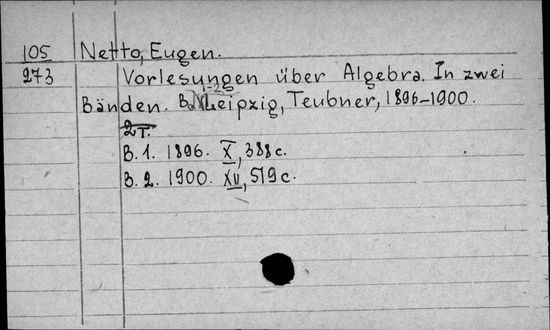 105 Netto, Eugen.
273 Vorlesungen über Algebra. In zwei
Bänden. B. 1-2. Leipzig, Teubner, 1896-1900.
2 T.
B. 1. 1896. X, 388 c.
B. 2. 1900. XII, 519 c.